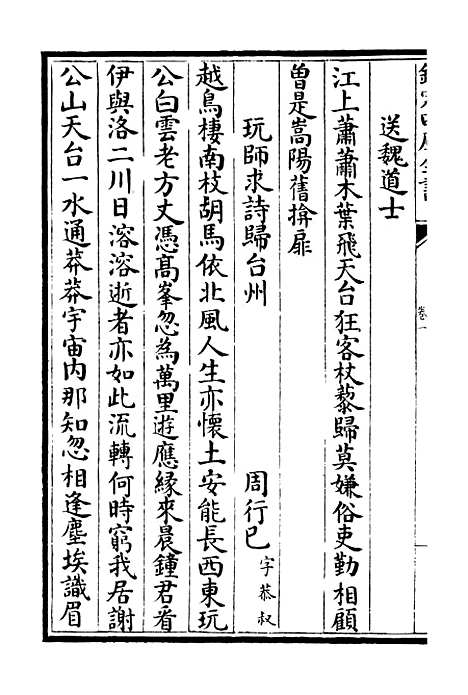 欽定四庫全書
卷一
送魏道士
江上蕭蕭木葉飛天台狂客杖藜歸莫嫌俗吏勤相顧
曽是嵩陽舊揜扉
玩師求詩歸台州　周行已字恭叔
越鳥棲南枝胡馬依北風人生亦懷土安能長西東玩
公白雲老方丈憑髙峯忽為萬里遊應縁來晨鐘君看
伊與洛二川日溶溶逝者亦如此流轉何時窮我居謝
公山天台一水通莽莽宇宙内那知忽相逢塵埃識眉